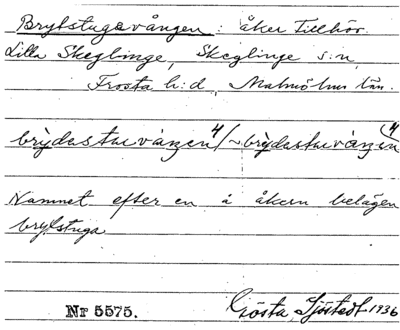 Brytstugevången: åker tillhör.
Lilla Skeglinge, Skeglinge s:n,
Frosta h:d, Malmöhus län.
brỳdastuvàŋen⁴/~brỳdastuvàŋen⁽⁴
Namnet efter en å åkern belägen
brytstuga
Nr 5575. Gösta Sjöstedt 1936